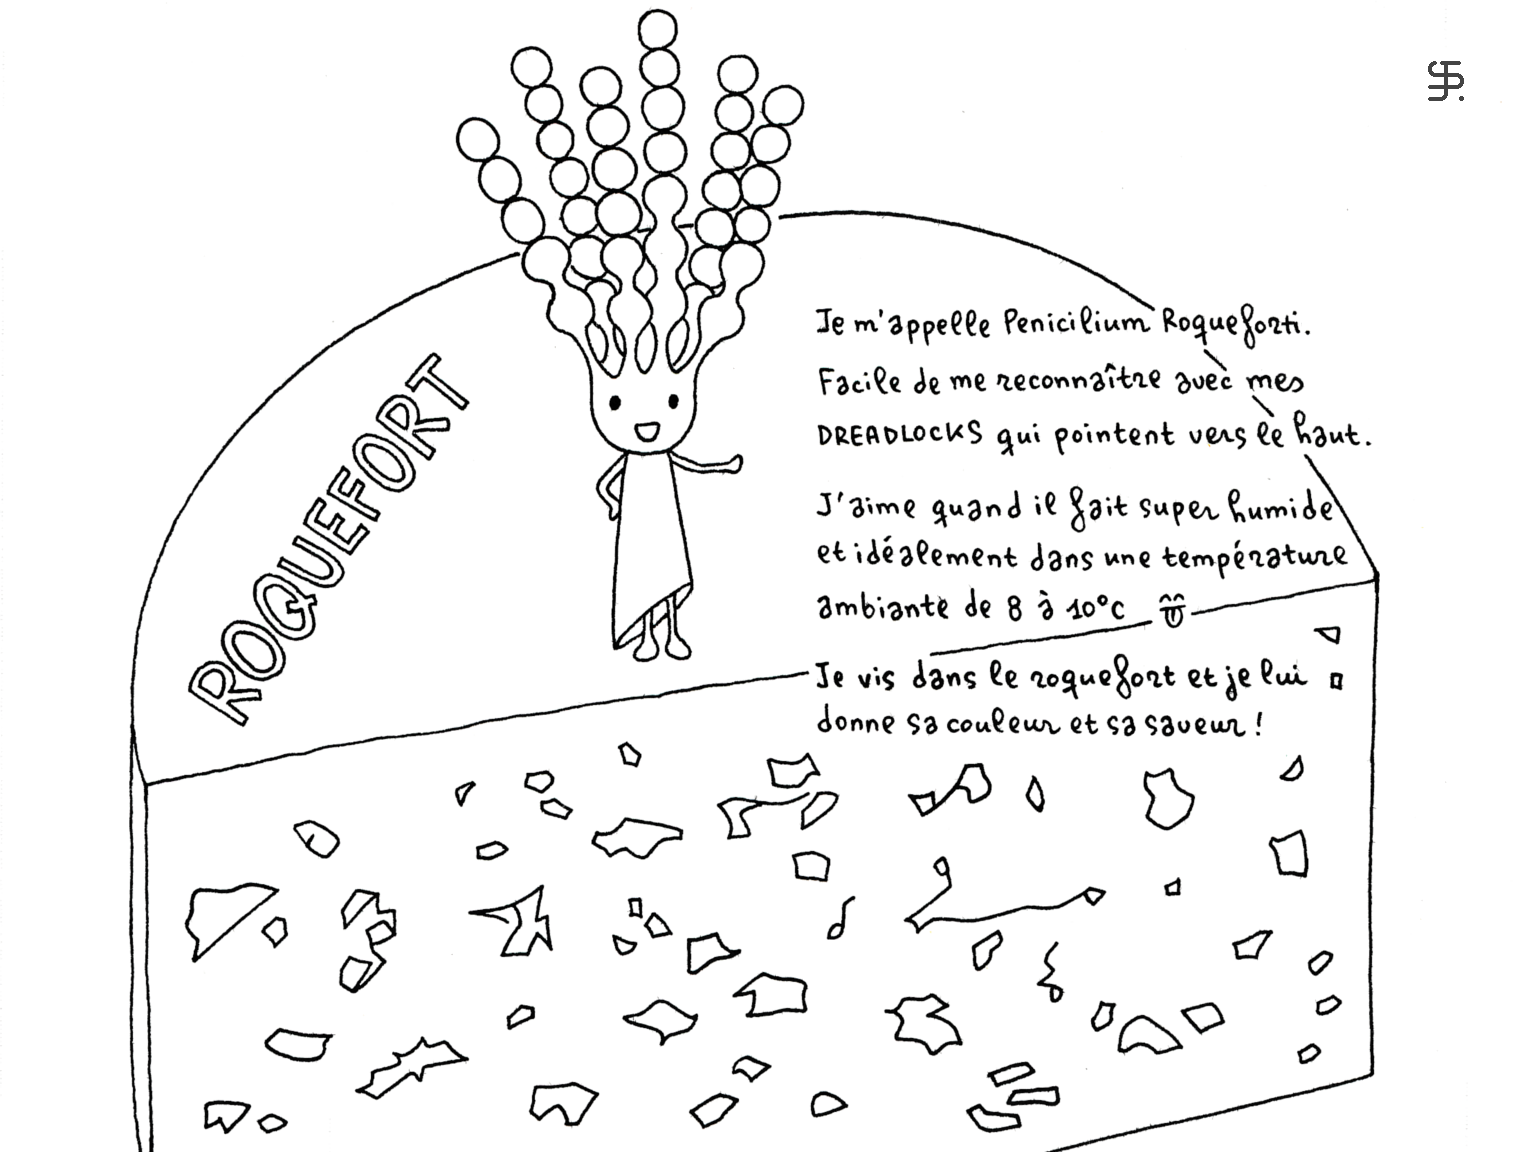 ROQUEFORT
Je m'appelle Penicilium Roqueforti.
Facile de me reconnaître avec mes
DREADLOCKS qui pointent vers le haut.
J'aime quand il fait super humide
et idéalement dans une température
ambiante de 8 à 10°C
Je vis dans le roquefort et je lui
donne sa couleur et sa saveur !